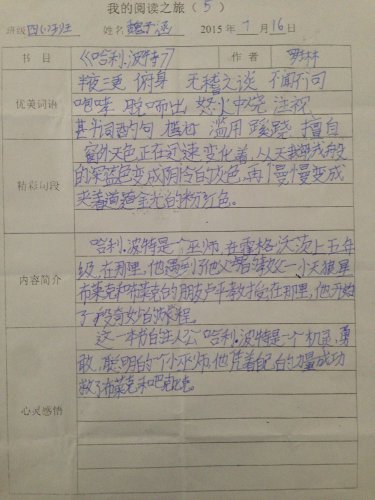 我的阅读之旅（5）
班级 四(3)班 姓名 2015年7月16日
书目 《哈利·波特7》 作者 罗林
优美词语
半夜三更 俯身 无稽之谈 不闻不问
咆哮 脱口而出 怒火中烧 注视
甚斗词酌句 滥用 蹊跷 擅自
精彩句段
窗外天色正在迅速变化着，从天鹅绒般
的深蓝色变成阴冷的灰色，再慢慢变成
夹着道道金光的粉红色。
内容简介
哈利·波特是个巫师，在霍格沃茨上五年
级，在那里，他遇到了他父亲的教父—小天狼星
布莱克和布莱克的朋友卢平教授，在那里，他开始
了段奇妙的旅程。
心灵感悟
这一本书的主人公哈利·波特是一个机灵、勇
敢、聪明的一个小巫师，他凭着自己的力量成功
救了布莱克和巴克比克。